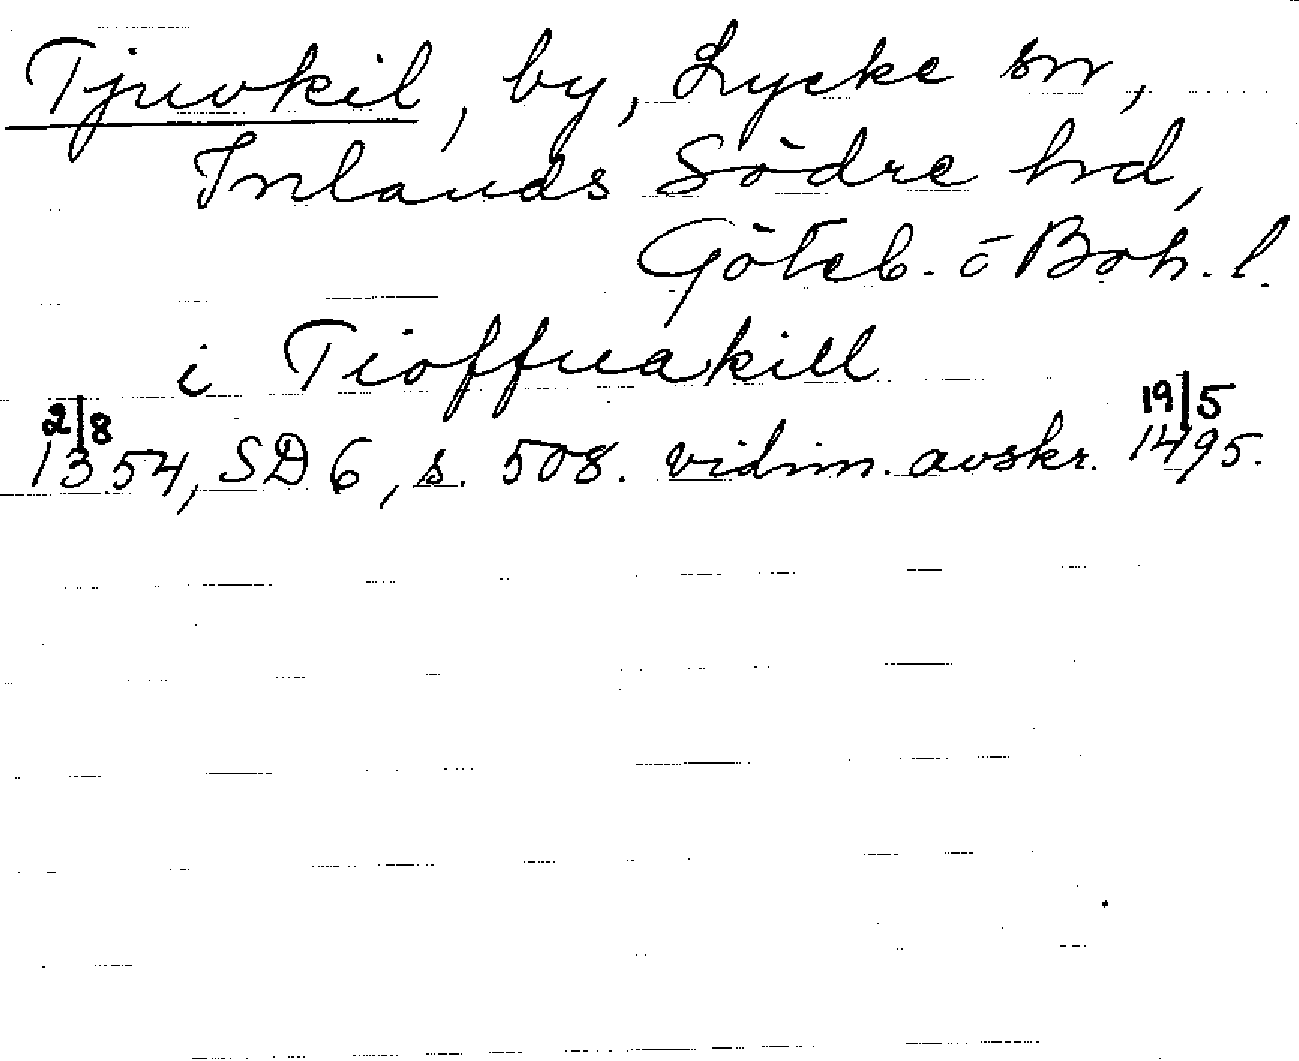 Tjuvkil, by, Lycke sn,
Inlands Södre hd,
Göteb. o Boh. l.
i Tioffuakill
2/8 19/5
1354, SD 6, s. 508. vidim. avskr. 1495.